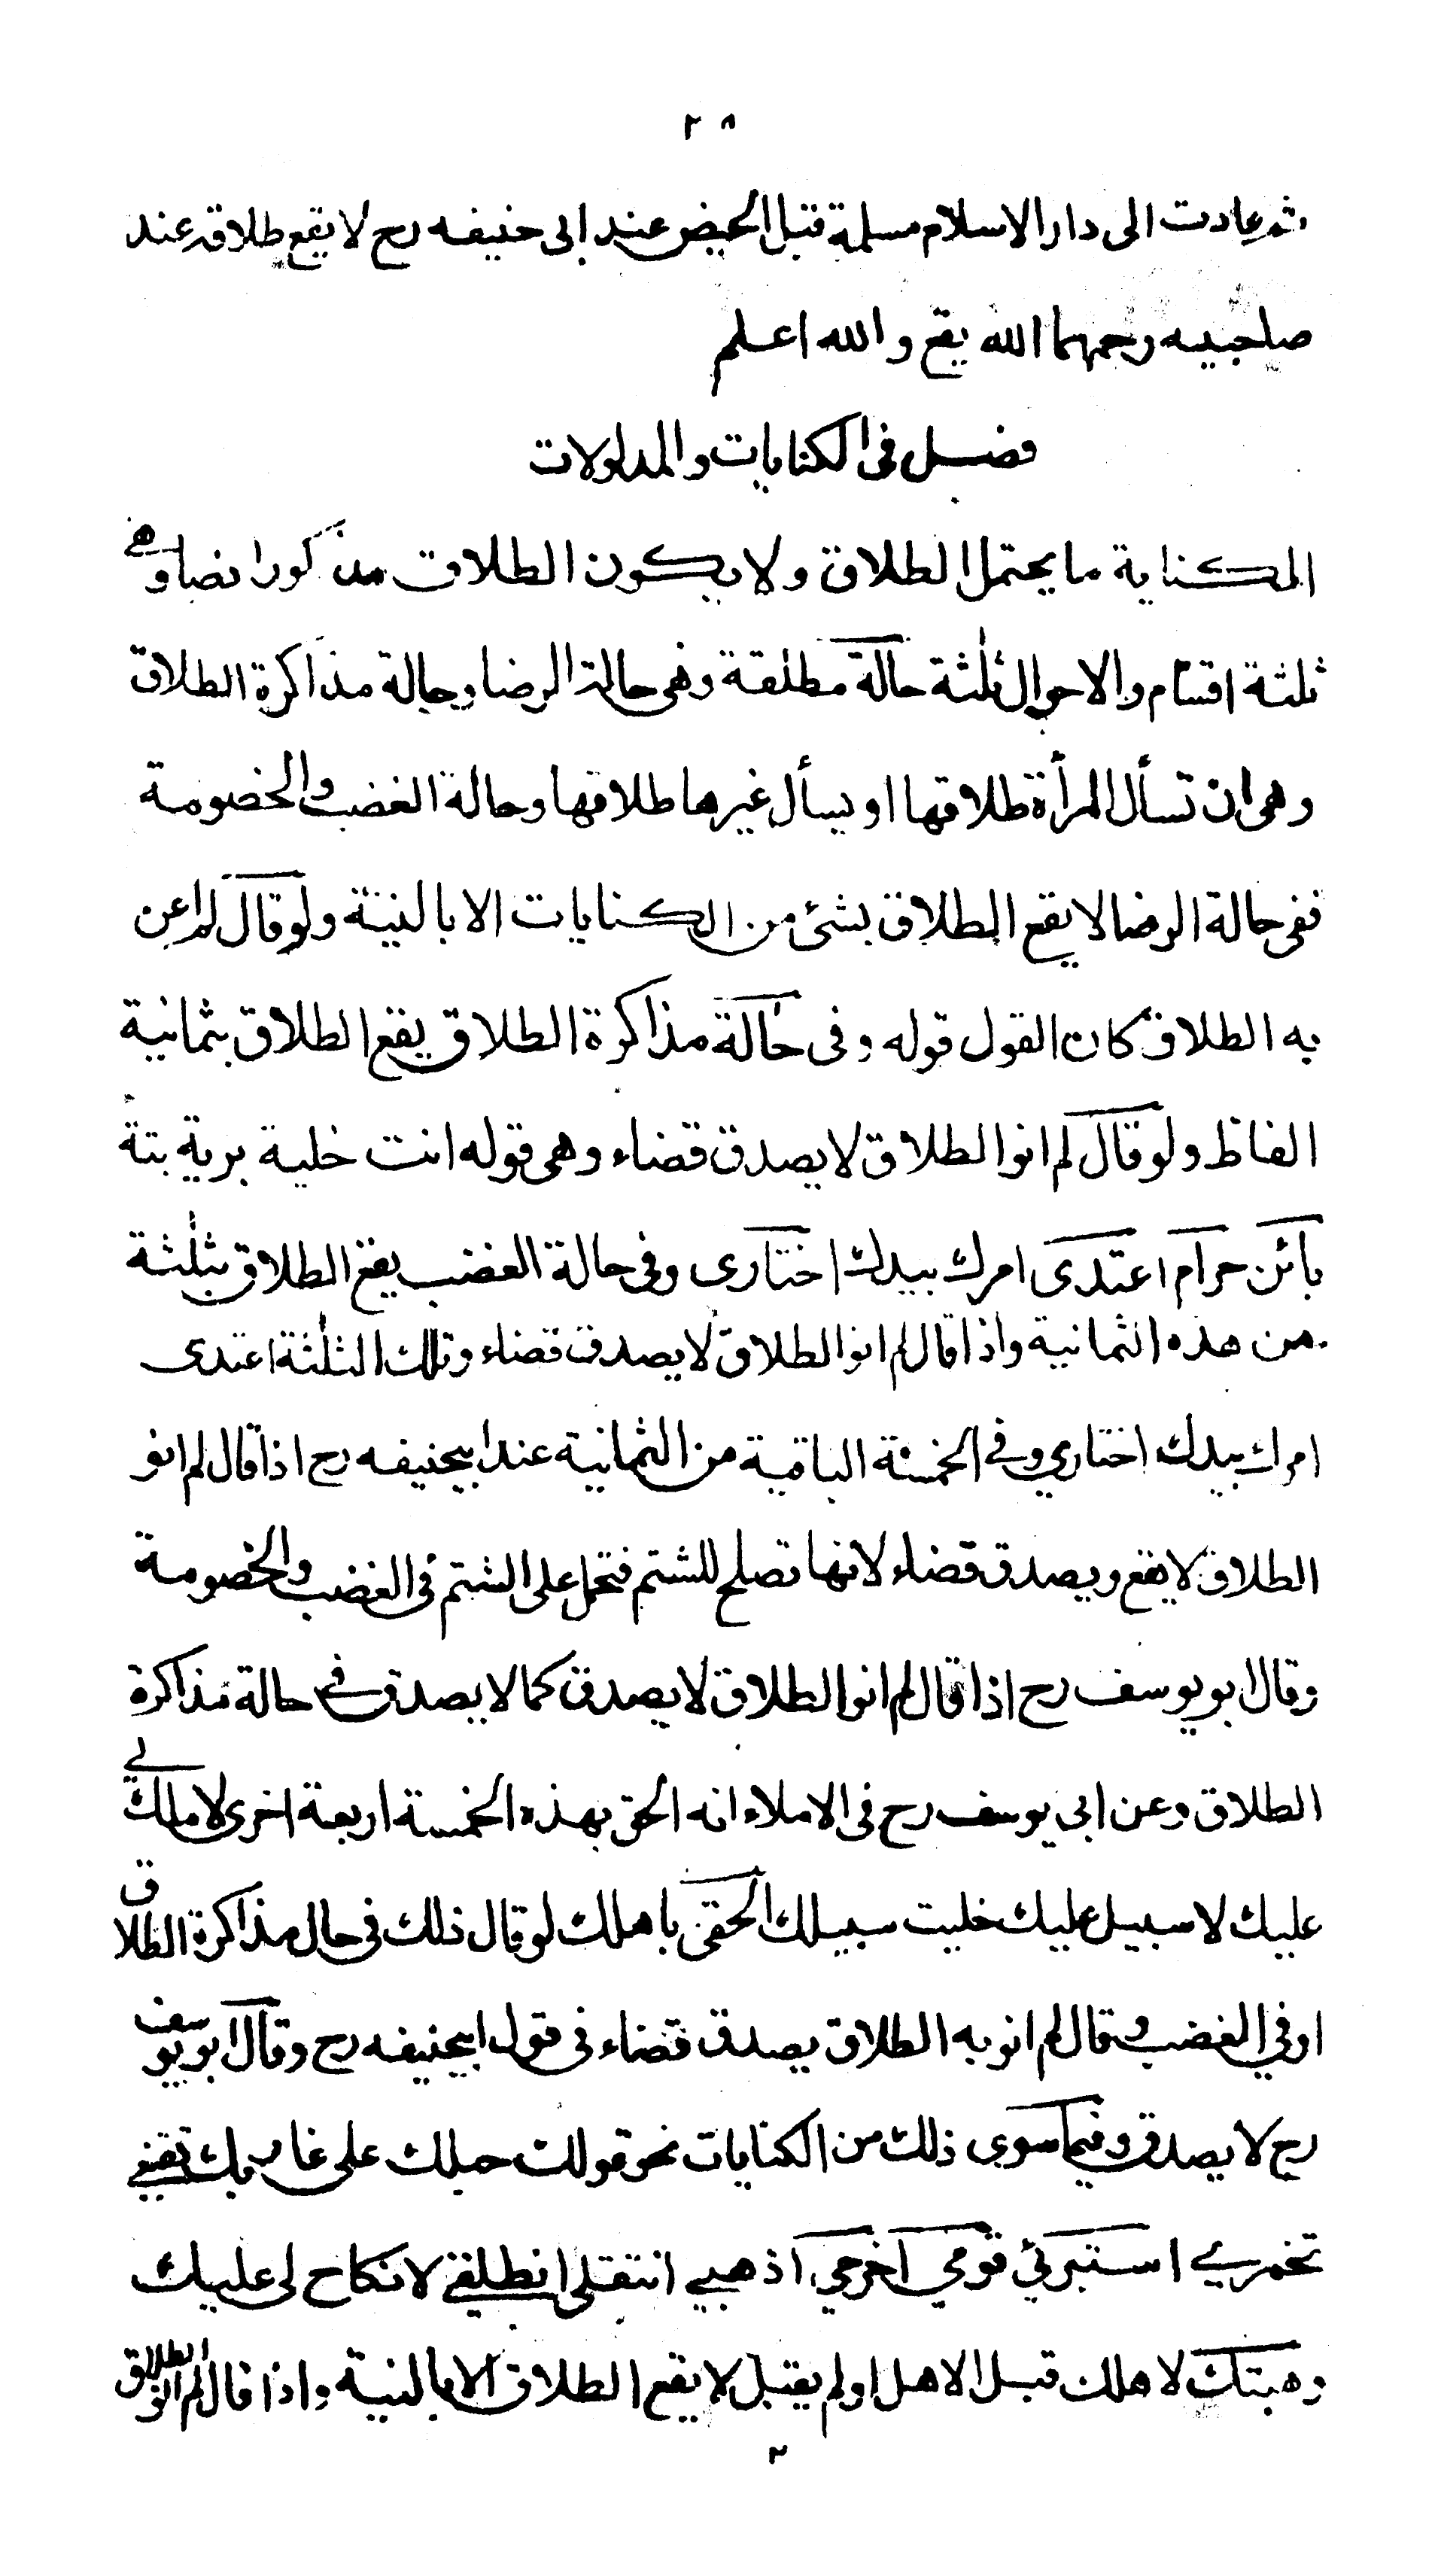 ٢٨
ثم عادت الى دار الاسلام مسلمة قبل الحيض عند ابى حنيفه رح لا يقع طلاقه عند
صاحبيه رحمهما الله يقع والله اعلم
فصل فى الكنايات والمدلولات
الكناية ما يحتمل الطلاق ولا يكون الطلاق مذكورا نصا وهى
ثلثة اقسام والاحوال ثلثة حالة مطلقة وهى حالة الرضا وحالة مذاكرة الطلاق
وهى ان تسأل المرأة طلاقها او يسأل غيرها طلاقها وحالة الغضب والخصومة
ففى حالة الرضا لا يقع الطلاق بشئ من الكنايات الا بالنية ولو قال لم اعن
به الطلاق كان القول قوله وفى حالة مذاكرة الطلاق يقع الطلاق بثمانية
الفاظ ولو قال لم انوا لطلاق لا يصدق قضاء وهى قوله انت خلية برية بتة
بائن حرام اعتدى امرك بيدك اختارى وفى حالة الغضب يقع الطلاق بثلثة
من هذه الثمانية واذا قال لم انوا لطلاق لا يصدق قضاء وتلك الثلثة اعتدى
امرك بيدك اختاري وفى الخمسة الباقية من الثمانية عند ابيحنيفه رح اذا قال لم انو
الطلاق لا يقع ويصدق قضاء لانها تصلح للشتم فتحمل على الشتم فى الغضب والخصومة
وقال ابو يوسف رح اذا قال لم انوا لطلاق لا يصدق كما لا يصدق فى حالة مذاكرة
الطلاق وعن ابى يوسف رح فى الاملاء انه الحق بهذه الخمسة اربعة اخرى لا ملك لي
عليك لا سبيل عليك خليت سبيلك الحقى باهلك لو قال ذلك فى حال مذاكرة الطلاق
او في الغضب وقال لم انو به الطلاق يصدق قضاء فى قول ابيحنيفه رح وقال ابو يوسف
رح لا يصدق وفيما سوى ذلك من الكنايات نحو قولك حبلك على غاربك تقنعى
تخمري استبرئي قومي اخرجي اذهبي انتقلى انطلقى لا نكاح لى عليك
وهبتك لاهلك قبل الاهل او لم يقبل لا يقع الطلاق الا بالنية واذا قال لم انو الطلاق
٢